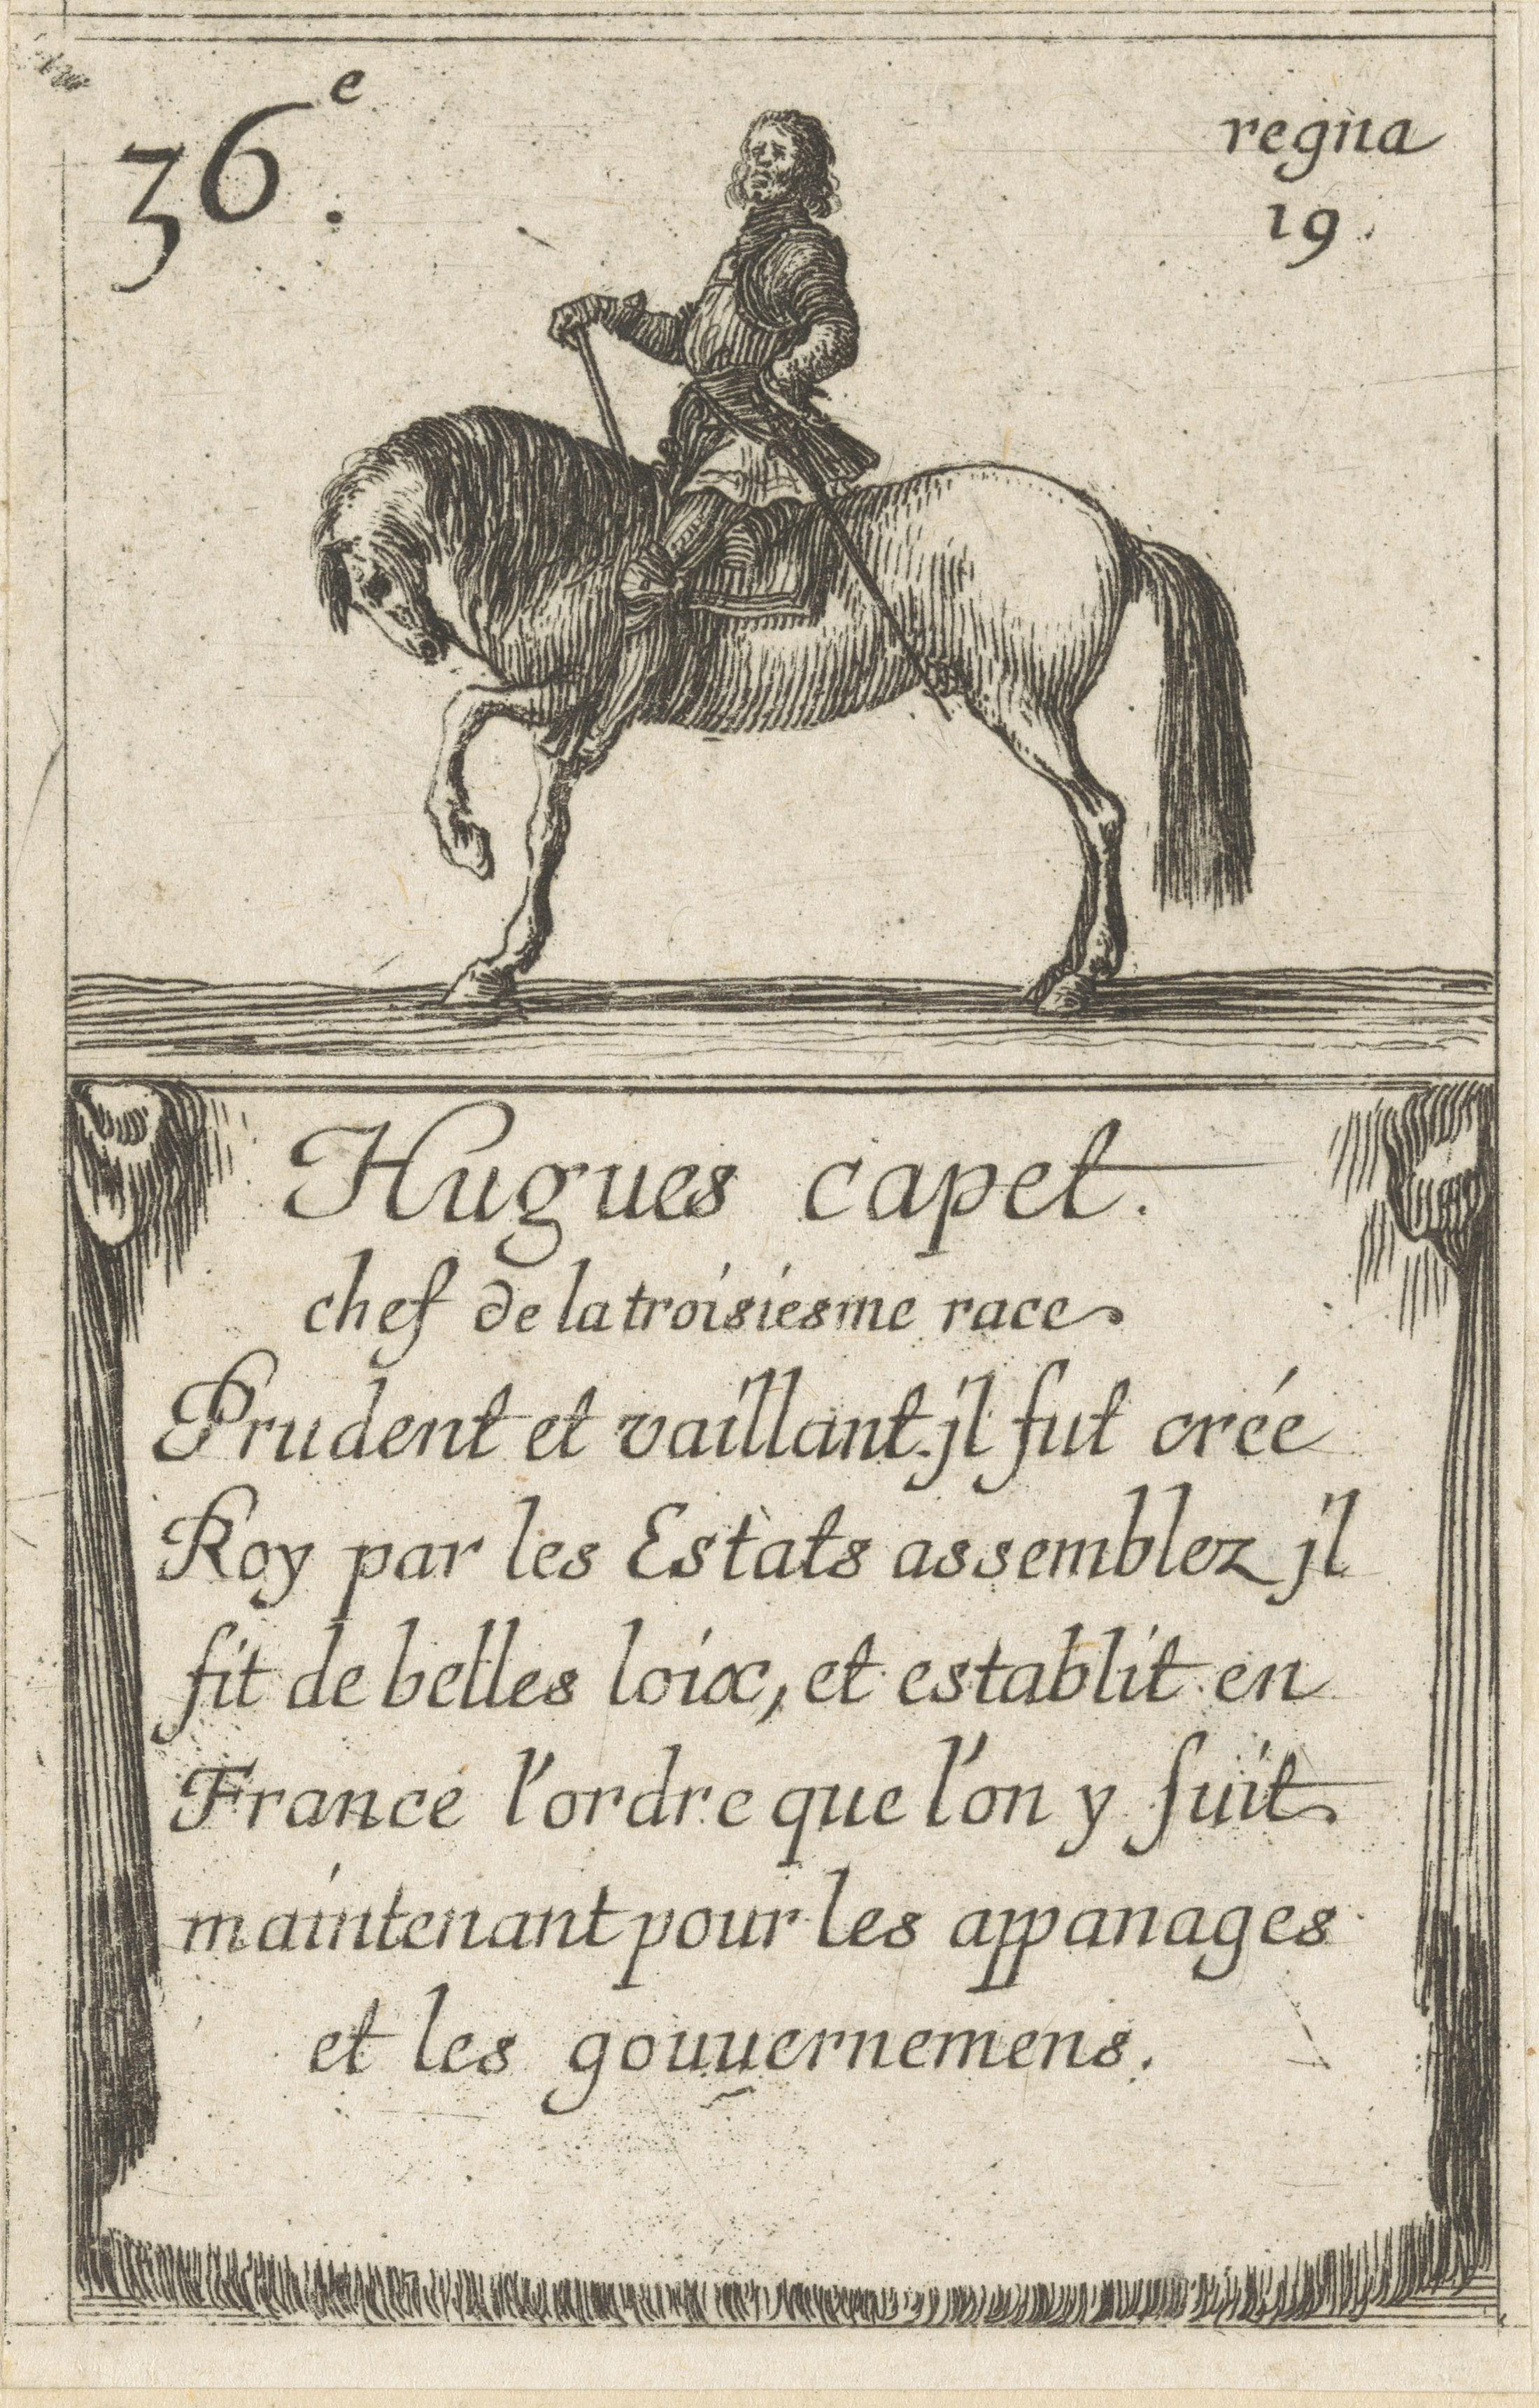 36.e
regna
19.
Hugues capet.
chef de la troisiesme race
Prudent et vaillant. jl fut créé
Roy par les Estats assemblez jl
fit de belles loix, et establit en
France l'ordre que l'on y suit
maintenant pour les appanages
et les gouuernemens.